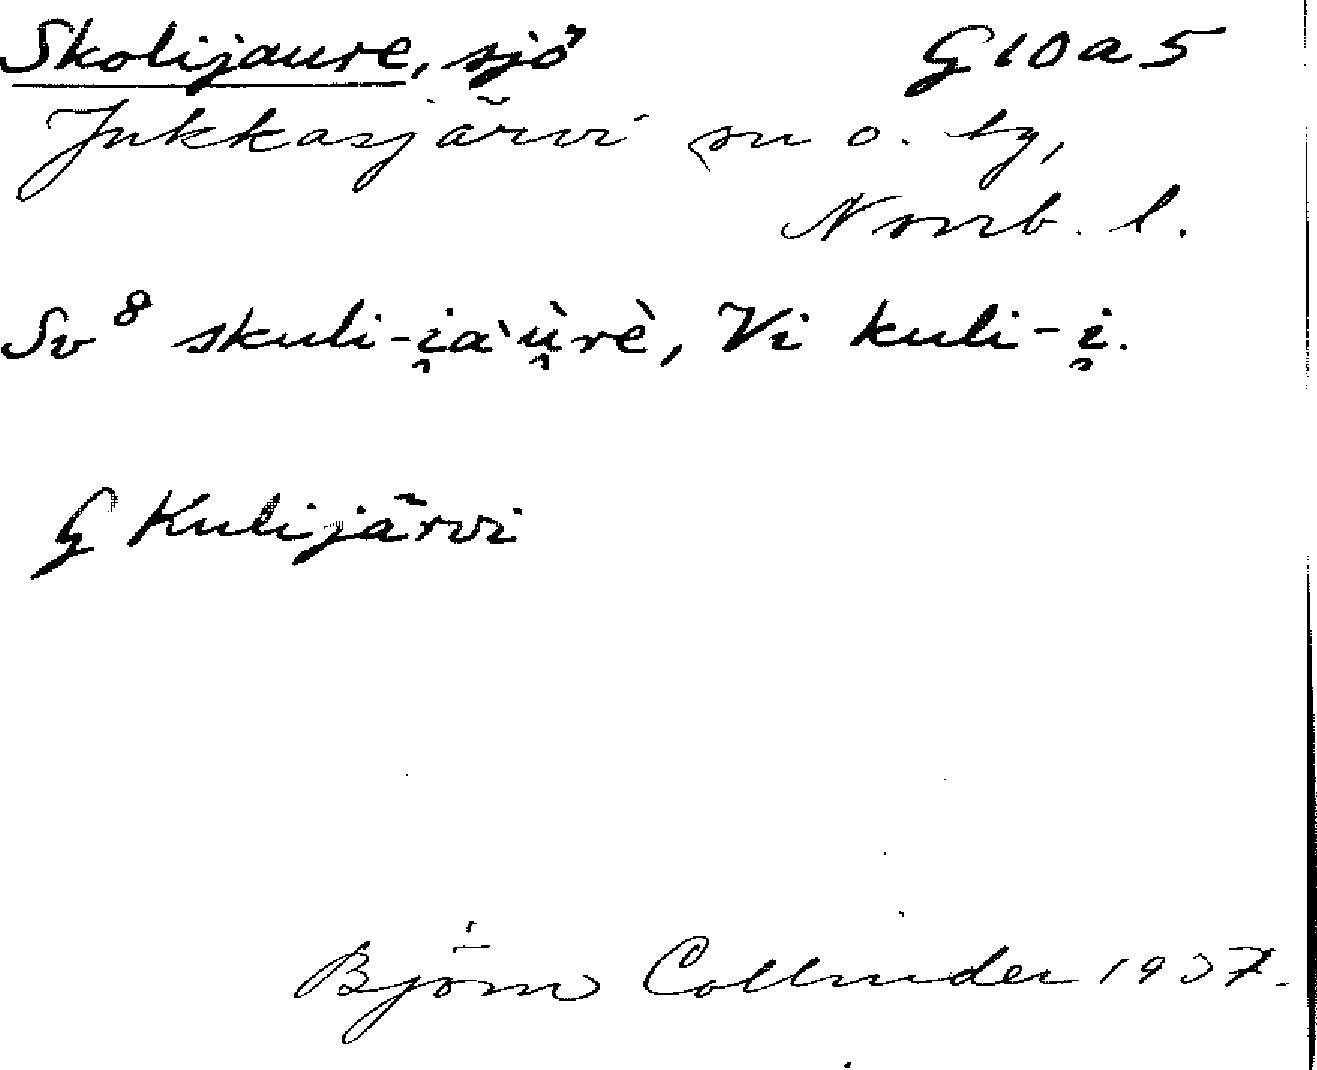 Skolijaure, sjö G10a5
Jukkasjärvi sn o. by,
Norrb. l.
Sv⁸ skuli-i̯a`ù̯rè, Vi kuli-i̯.
G Kulijärvi
Björn Collinder 1937.